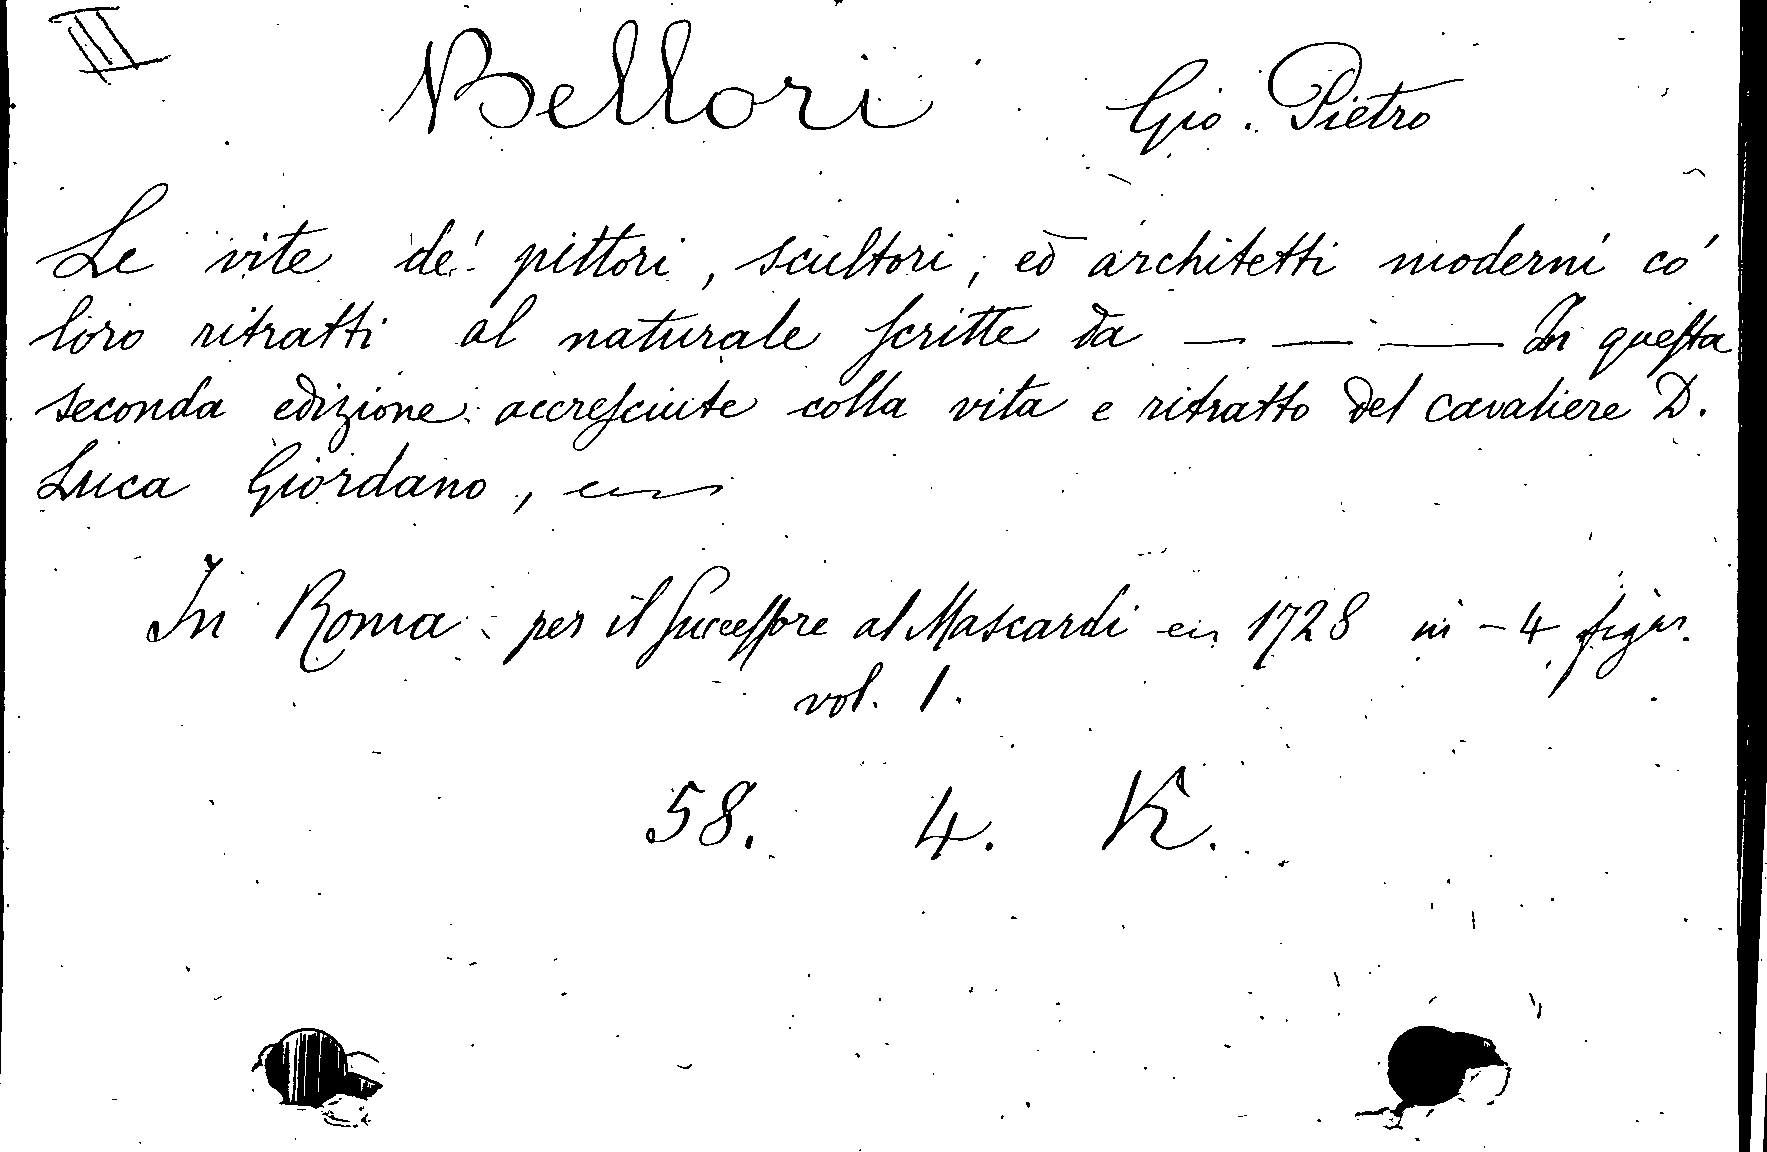 II
Bellori Gio. Pietro
Le vite de' pittori, scultori, ed architetti moderni co'
loro ritratti al naturale ſcritte da — — — In queſta
seconda edizione accreſciute colla vita e ritratto del cavaliere D.
Luca Giordano,
In Roma per il ſucceſſore al Mascardi 1728 in-4, figur.
vol. 1.
58. 4. K.